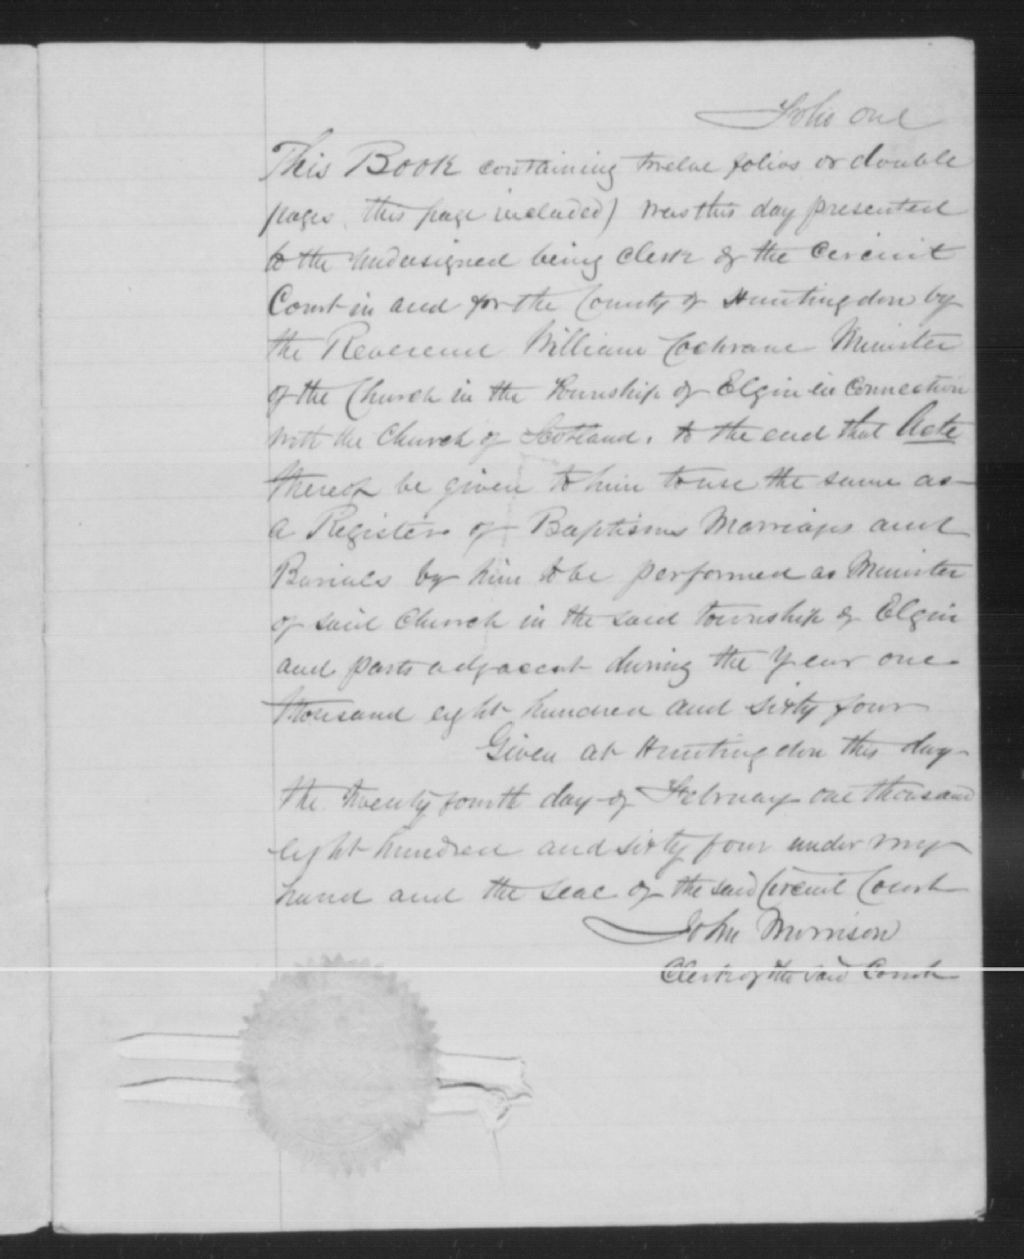 Folio one
This Book containing twelve folios or double
pages, this page included) was this day presented
to the undersigned being Clerk of the Circuit
Court in and for the County of Huntingdon by
the Reverend William Cochrane Minister
of the Church in the Township of Elgin in Connection
with the Church of Scotland, to the end that Acte
thereof be given to him to use the same as
a Register of Baptisms Marriages and
Burials by him to be performed as Minister
of said Church in the said township of Elgin
and parts adjacent during the Year one
thousand eight hundred and sixty four
Given at Huntingdon this day
the twenty fourth day of February one thousand
eight hundred and sixty four under my
hand and the seal of the said Circuit Court
John Morrison
Clerk of the said Court